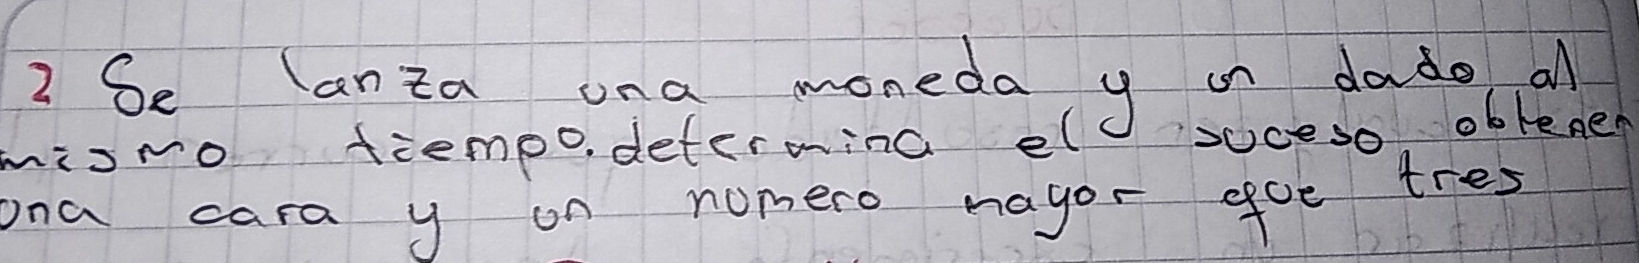 2 Se lanza una moneda y un dado al
mismo tiempo. determina el suceso obtener
una cara y un numero mayor que tres